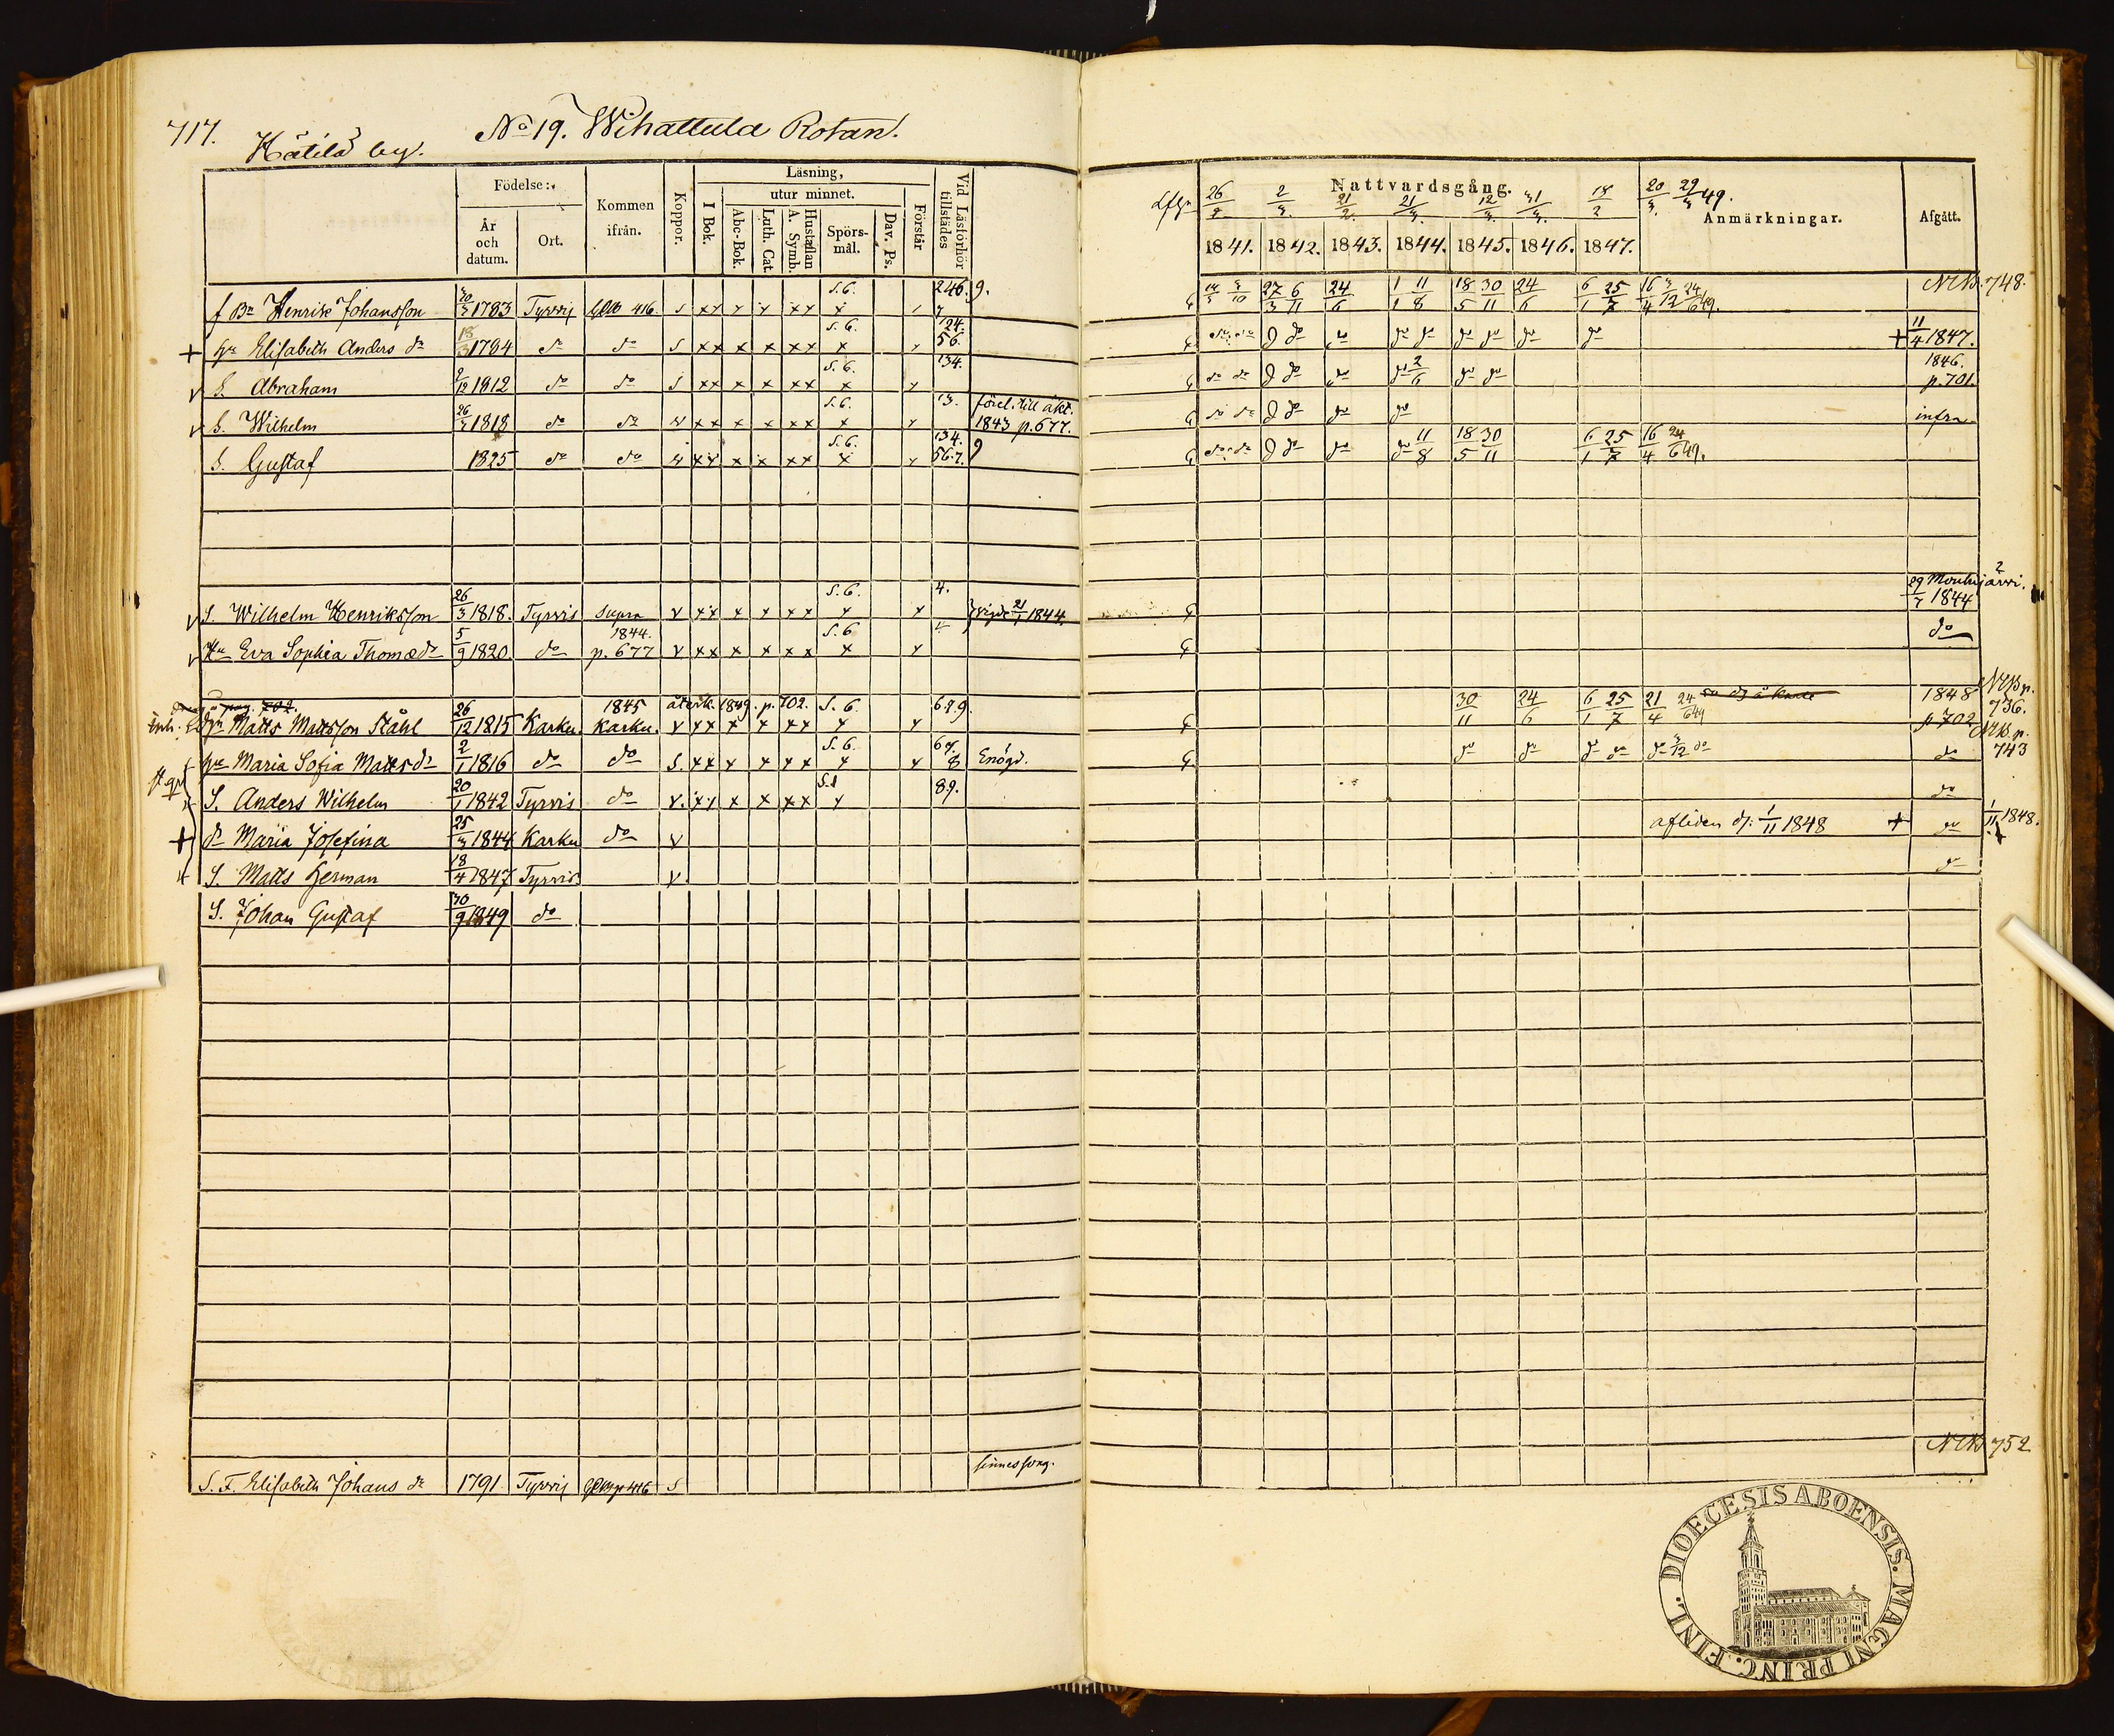 717.
No 19. Wihattula Rotan.
Kätilä by.
Födelse:
År och datum.
Ort.
Kommen ifrån.
Koppor.
Läsning,
I Bok.
utur minnet.
Abc-Bok.
Luth. Cat.
Hustaflan A. Symb.
Spörs-mål.
Dav. Ps.
Förstår
Vid Läsförhör tillstädes
Nattvardsgång.
26/2 2/3. 21/2. 21/3. 12/3. 31/3. 18/2 20/3. 29/3 49.
1841. 1842. 1843. 1844. 1845. 1846. 1847.
Anmärkningar.
Afgått.
f Bn Henrik Johansson 1783 Tyrvis 416. S S.6. 246. 9. 7 27/3 6/11 24/6 1/1 11/8 18/5 30/11 24/6 6/1 25/7 16/4 3/12 24/6 49. NKB. 748.
+ hu Elisabeth Anders dr 18/3 1784 do do S xx x x xx x S.6. 124. 56. + 11/4 1847.
S. Abraham 2/12 1812 do do S xx x x xx x S.6. 134. 2/6 1846. p. 701.
S. Wilhelm 26/3 1818 do do xx x x xx x S.6. 13. förel. till äkt. 1843 p. 677. infra
S. Gustaf 1825 do do xx x x xx x S.6. 134. 567. 9 11/8 18/5 30/11 6/1 25/7 16/4 24/6 49.
S. Wilhelm Henriksson 26/3 1818. Tyrvis supra v xx x x xx x S.6. 4. vigde 21/1 1844. 29/7 Mouhijärvi. 1844
Hu Eva Sophia Thomædr 5/9 1820. do 1844. p. 677 v xx x x xx x S.6 do
pag. 702.
inh. Matts Mattsson Ståhl 26/12 1815 Karku 1845 Karku. återk. 1849. p. 702. S.6 6.8.9. 30/11 24/6 6/1 25/7 21/4 24/6 49 1848 p 702 NKB p. 736.
hu Maria Sofia Mattsdr 2/1 1816 do do S. xx x x xx x S.6. 67. 8 Enögd. do do do do do 3/12 do do NKB p. 743
S. Anders Wilhelm 20/1 1842 Tyrvis do v. xx x x xx x 89. do
+ dr Maria Josefina 25/3 1844 Karku do v afliden d. 1/11 1848 + do 1/11 1848.
S. Matts Herman 18/4 1847 Tyrvis v do
S. Johan Gustaf 30/9 1849 do
S. F. Elisabeth Johans dr 1791. Tyrvis 416 S sinnessvag. NKB 752
DIOECESIS ABOENSIS. MAGNI PRINC. FINL.